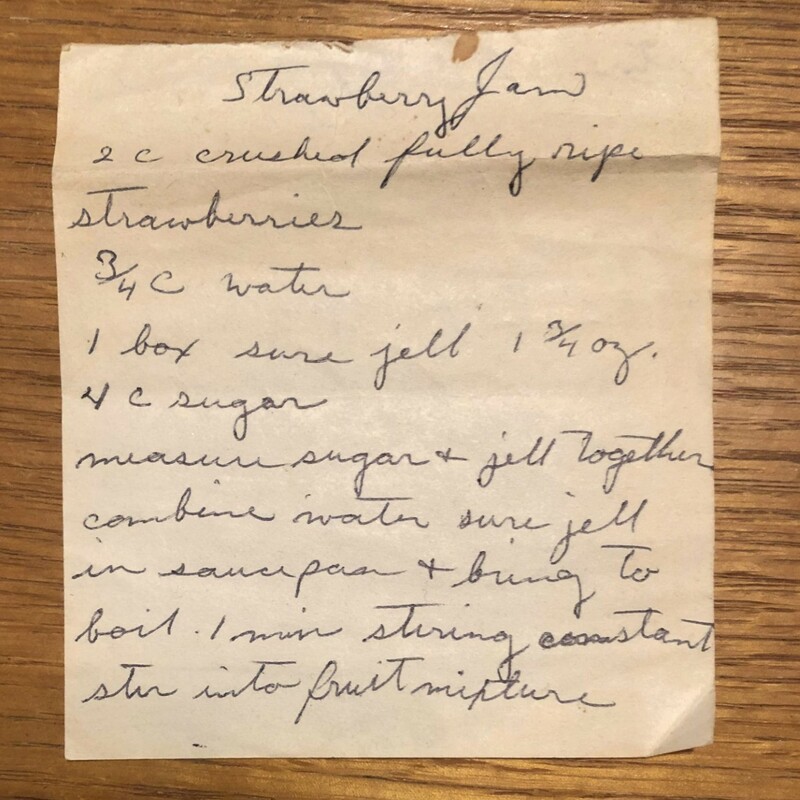 Strawberry Jam
2 c crushed fully ripe
strawberries
3/4 c water
1 box sure jell 1 3/4 oz.
4 c sugar
measure sugar + jell together
combine water sure jell
in saucepan + bring to
boil. 1 min stiring constant
stir into fruit mixture